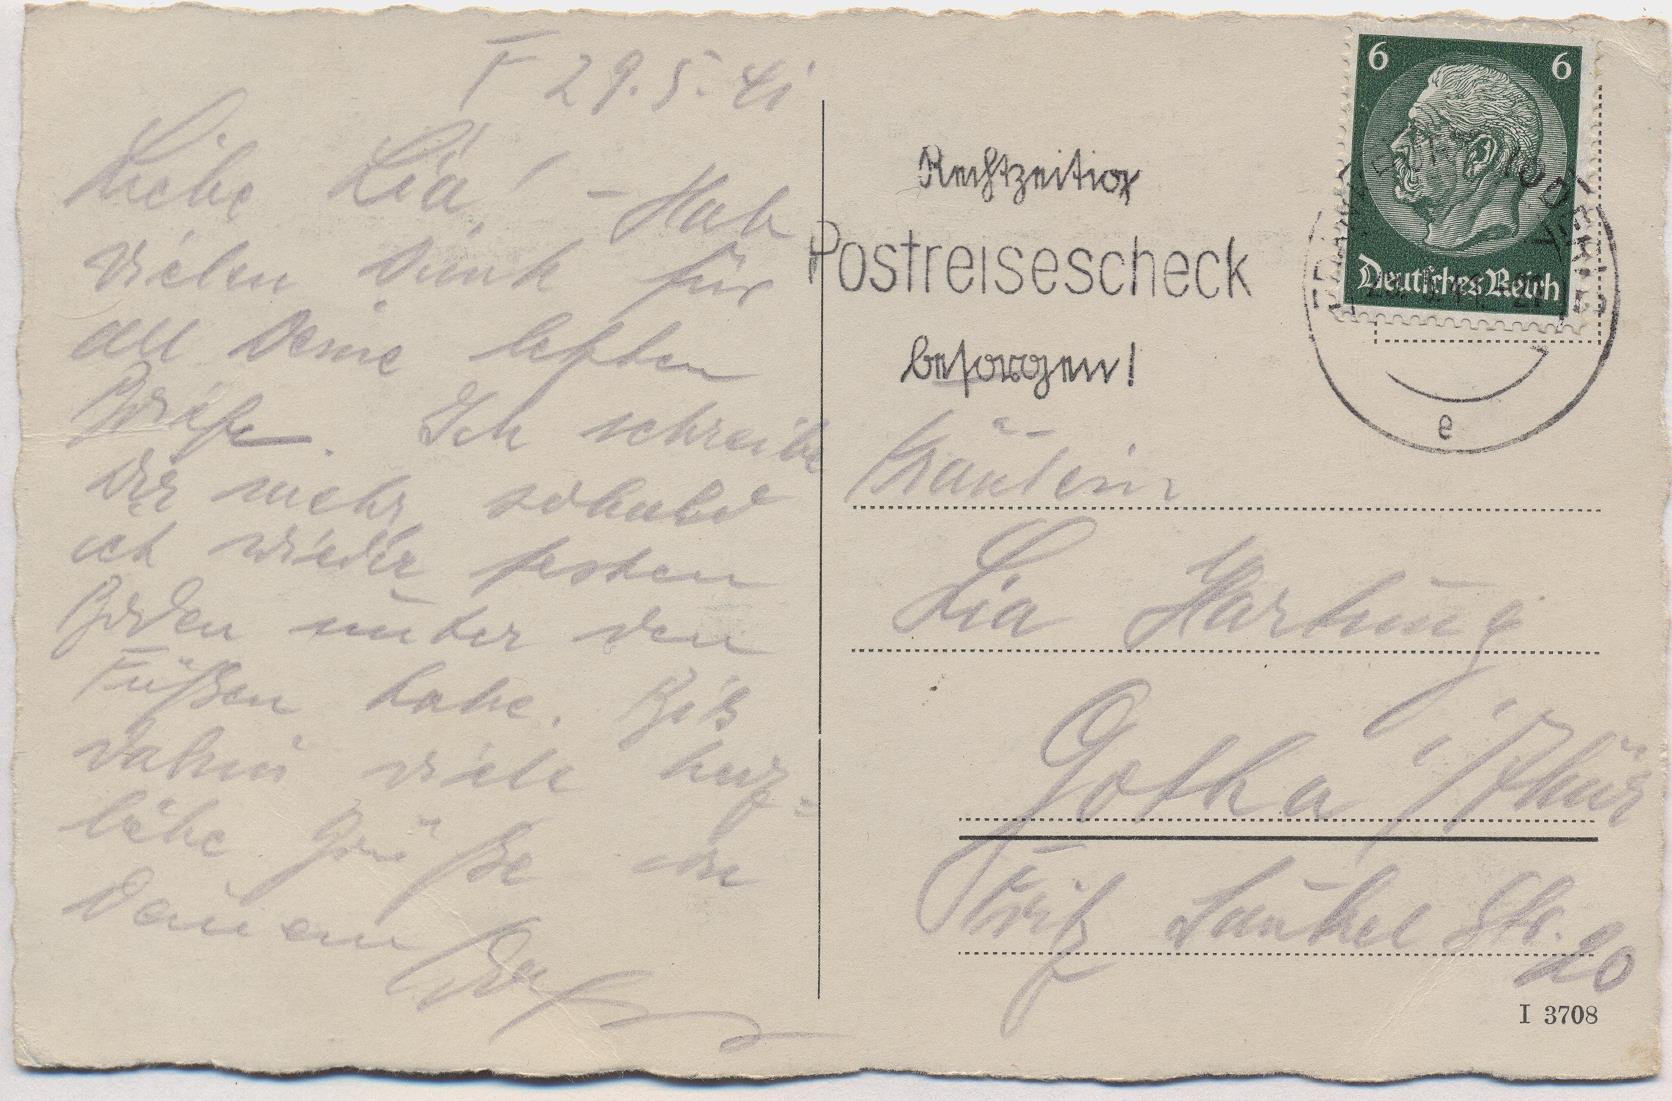 F 29.5.41
Liebe Lia! – Hab
vielen Dank für
all Deine letzten
Briefe. Ich schreibe
Dir mehr, sobald
ich wieder festen
Boden unter den
Füßen habe. Bis
dahin viele herz=
liche Grüße von
Deinem
Rechtzeitig
Postreisescheck
besorgen!
6 6
Deutsches Reich
e
Fräulein
Lia Hartung
Gotha i/Thür
Fritz Sauckel Str.
20
I 3708